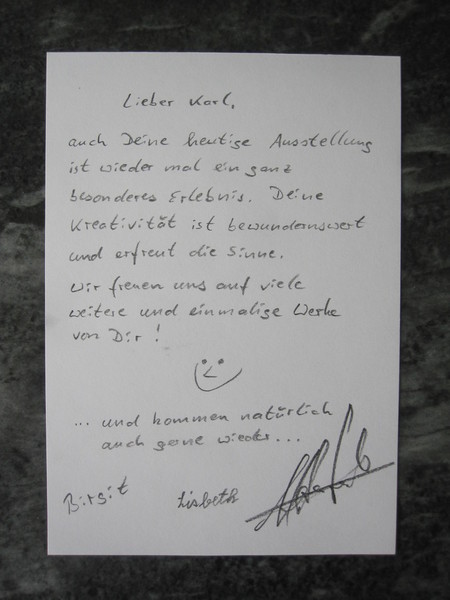 Lieber Karl,
auch Deine heutige Ausstellung
ist wieder mal ein ganz
besonderes Erlebnis. Deine
Kreativität ist bewundernswert
und erfreut die Sinne.
Wir freuen uns auf viele
weitere und einmalige Werke
von Dir!
... und kommen natürlich
auch gerne wieder...
Birgit Lisbeth